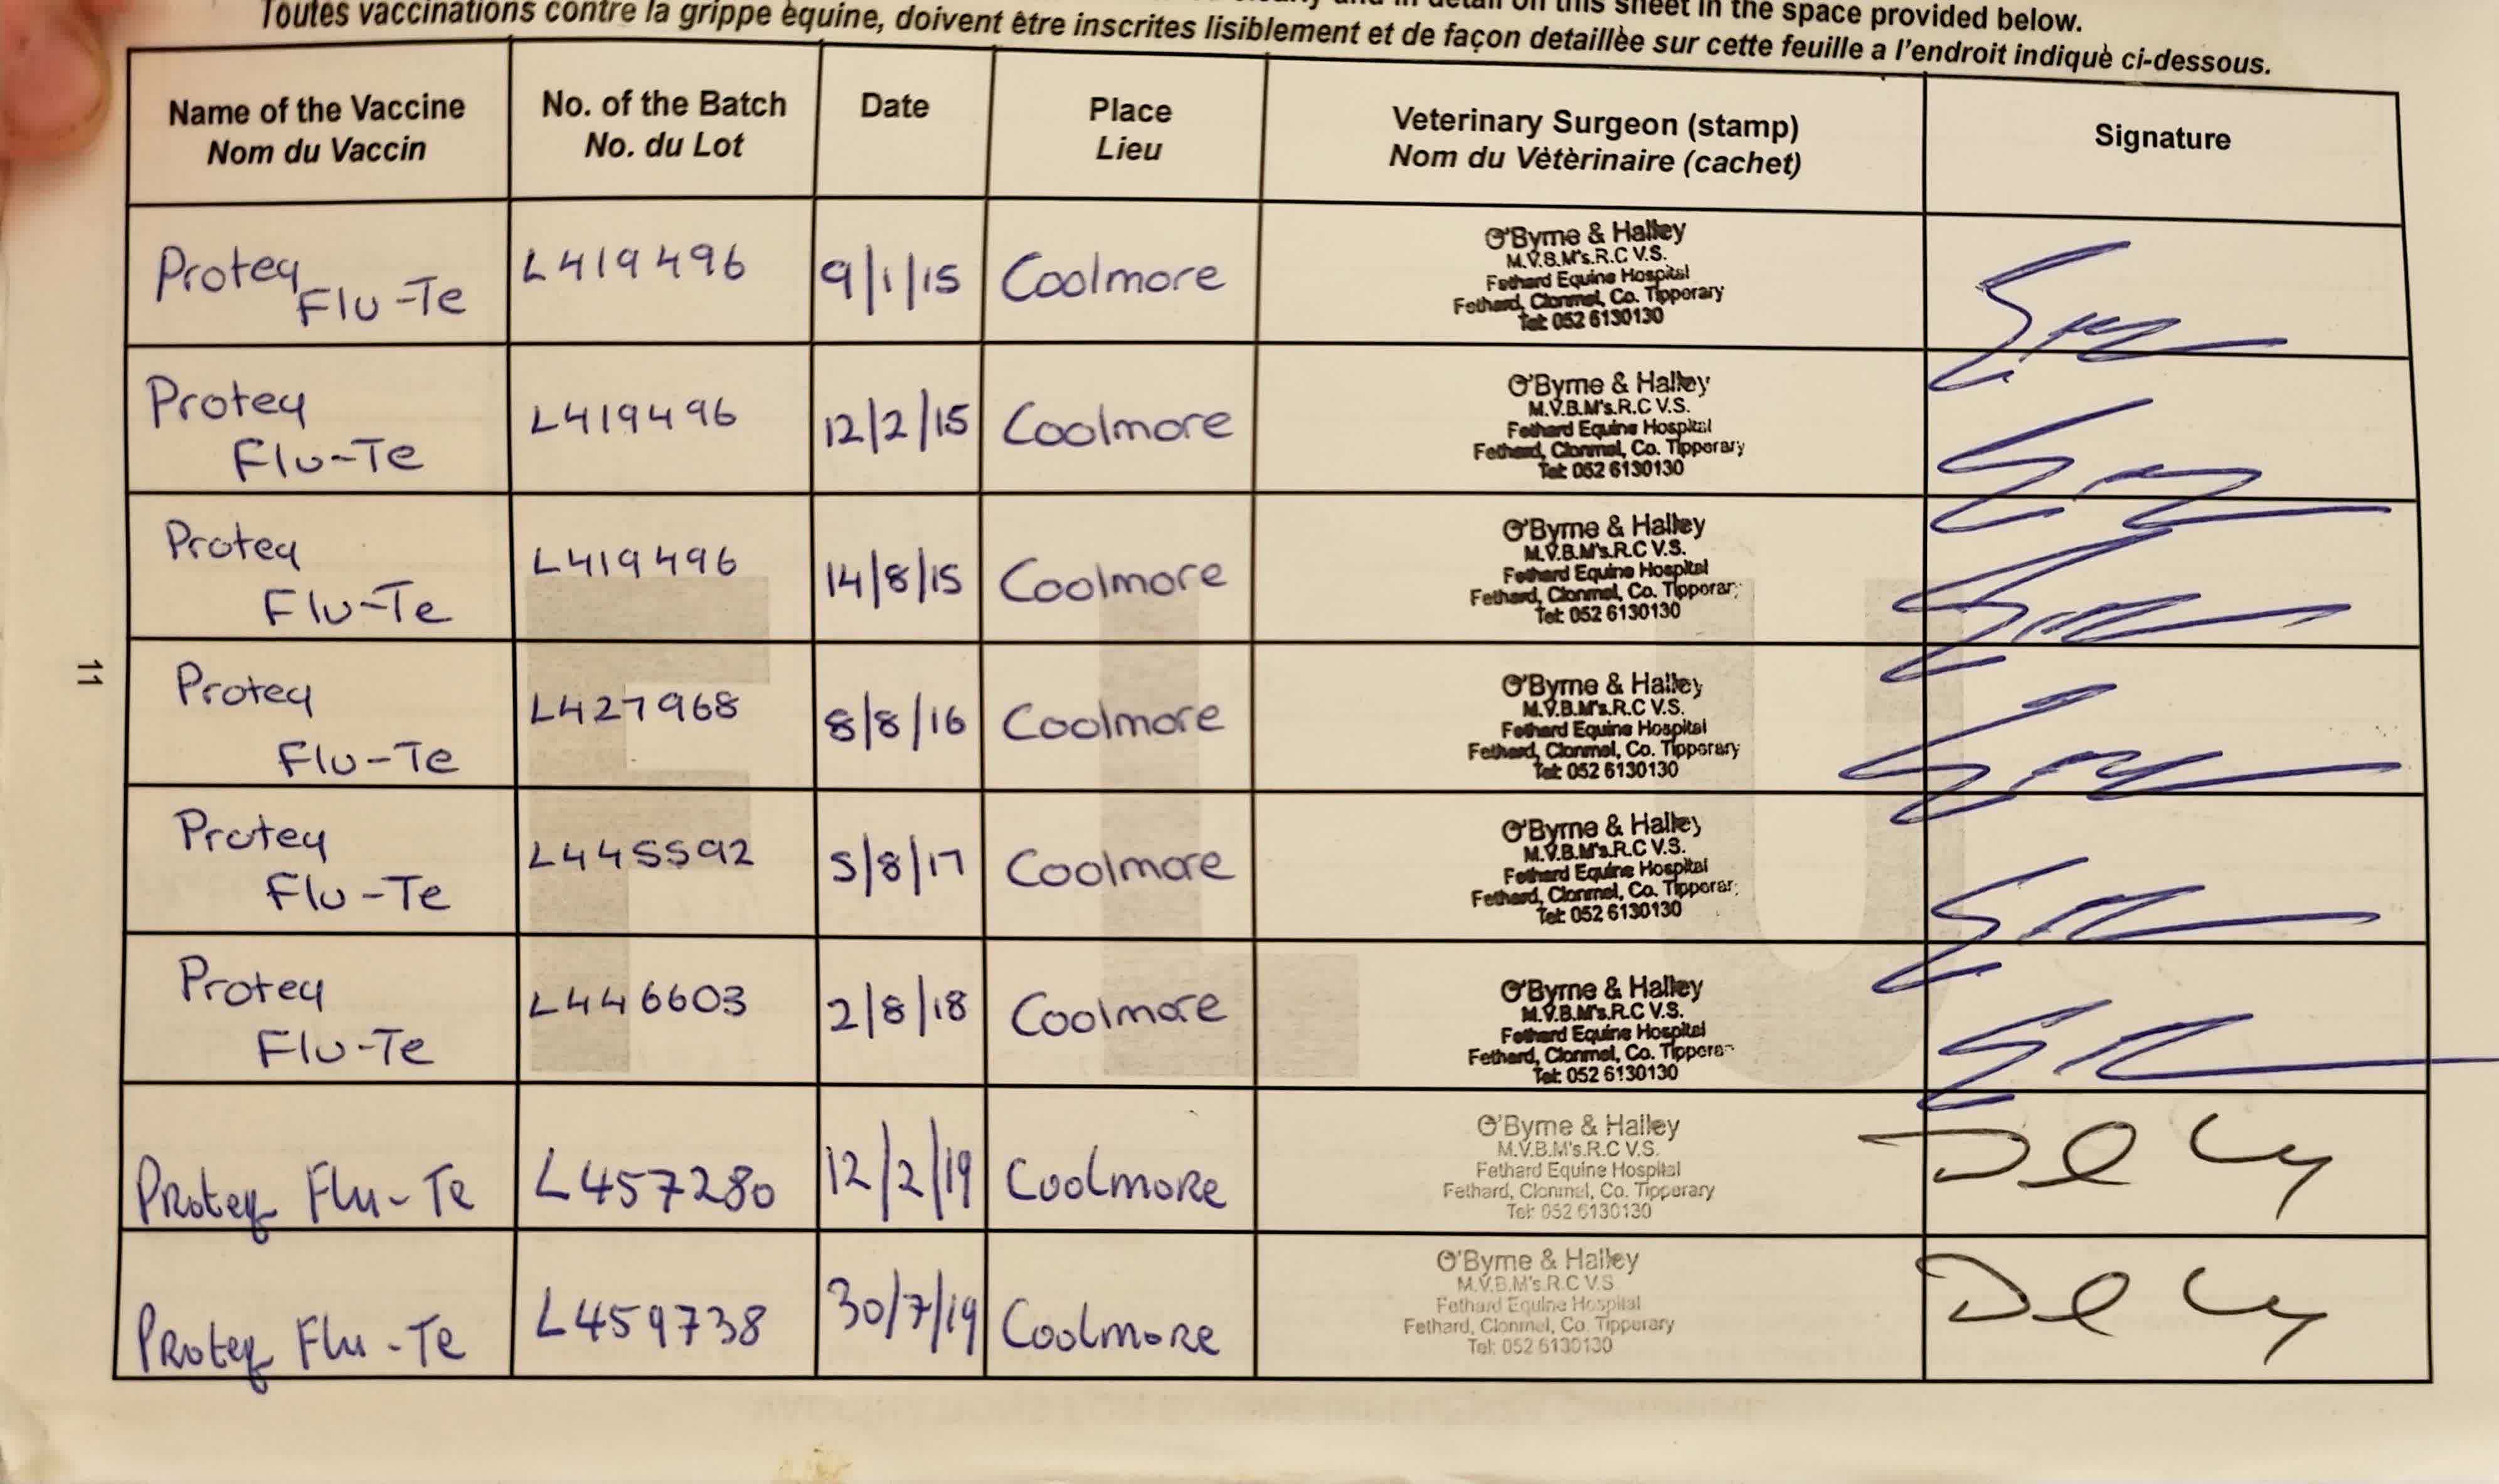 and in detail on this sheet in the space provided below.
Toutes vaccinations contre la grippe èquine, doivent être inscrites lisiblement et de façon detaillèe sur cette feuille a l'endroit indiquè ci-dessous.
Name of the Vaccine
Nom du Vaccin
No. of the Batch
No. du Lot
Date
Place
Lieu
Veterinary Surgeon (stamp)
Nom du Vètèrinaire (cachet)
Signature
Proteq
Flu-Te
L419496
9/1/15
Coolmore
O'Byrne & Halley
M.V.B.M's.R.C V.S.
Fethard Equine Hospital
Fethard, Clonmel, Co. Tipperary
Tel: 052 6130130
Proteq
Flu-Te
L419496
12/2/15
Coolmore
O'Byrne & Halley
M.V.B.M's.R.C V.S.
Fethard Equine Hospital
Fethard, Clonmel, Co. Tipperary
Tel: 052 6130130
Proteq
Flu-Te
L419496
14/8/15
Coolmore
O'Byrne & Halley
M.V.B.M's.R.C V.S.
Fethard Equine Hospital
Fethard, Clonmel, Co. Tipperary
Tel: 052 6130130
Proteq
Flu-Te
L427968
8/8/16
Coolmore
O'Byrne & Halley
M.V.B.M's.R.C V.S.
Fethard Equine Hospital
Fethard, Clonmel, Co. Tipperary
Tel: 052 6130130
Proteq
Flu-Te
L445592
5/8/17
Coolmore
O'Byrne & Halley
M.V.B.M's.R.C V.S.
Fethard Equine Hospital
Fethard, Clonmel, Co. Tipperary
Tel: 052 6130130
Proteq
Flu-Te
L446603
2/8/18
Coolmore
O'Byrne & Halley
M.V.B.M's.R.C V.S.
Fethard Equine Hospital
Fethard, Clonmel, Co. Tipperary
Tel: 052 6130130
Proteq Flu-Te
L457280
12/2/19
Coolmore
O'Byrne & Halley
M.V.B.M's.R.C V.S.
Fethard Equine Hospital
Fethard, Clonmel, Co. Tipperary
Tel: 052 6130130
Proteq Flu-Te
L459738
30/7/19
Coolmore
O'Byrne & Halley
M.V.B.M's.R.C V.S
Fethard Equine Hospital
Fethard, Clonmel, Co. Tipperary
Tel: 052 6130130
FLU
11